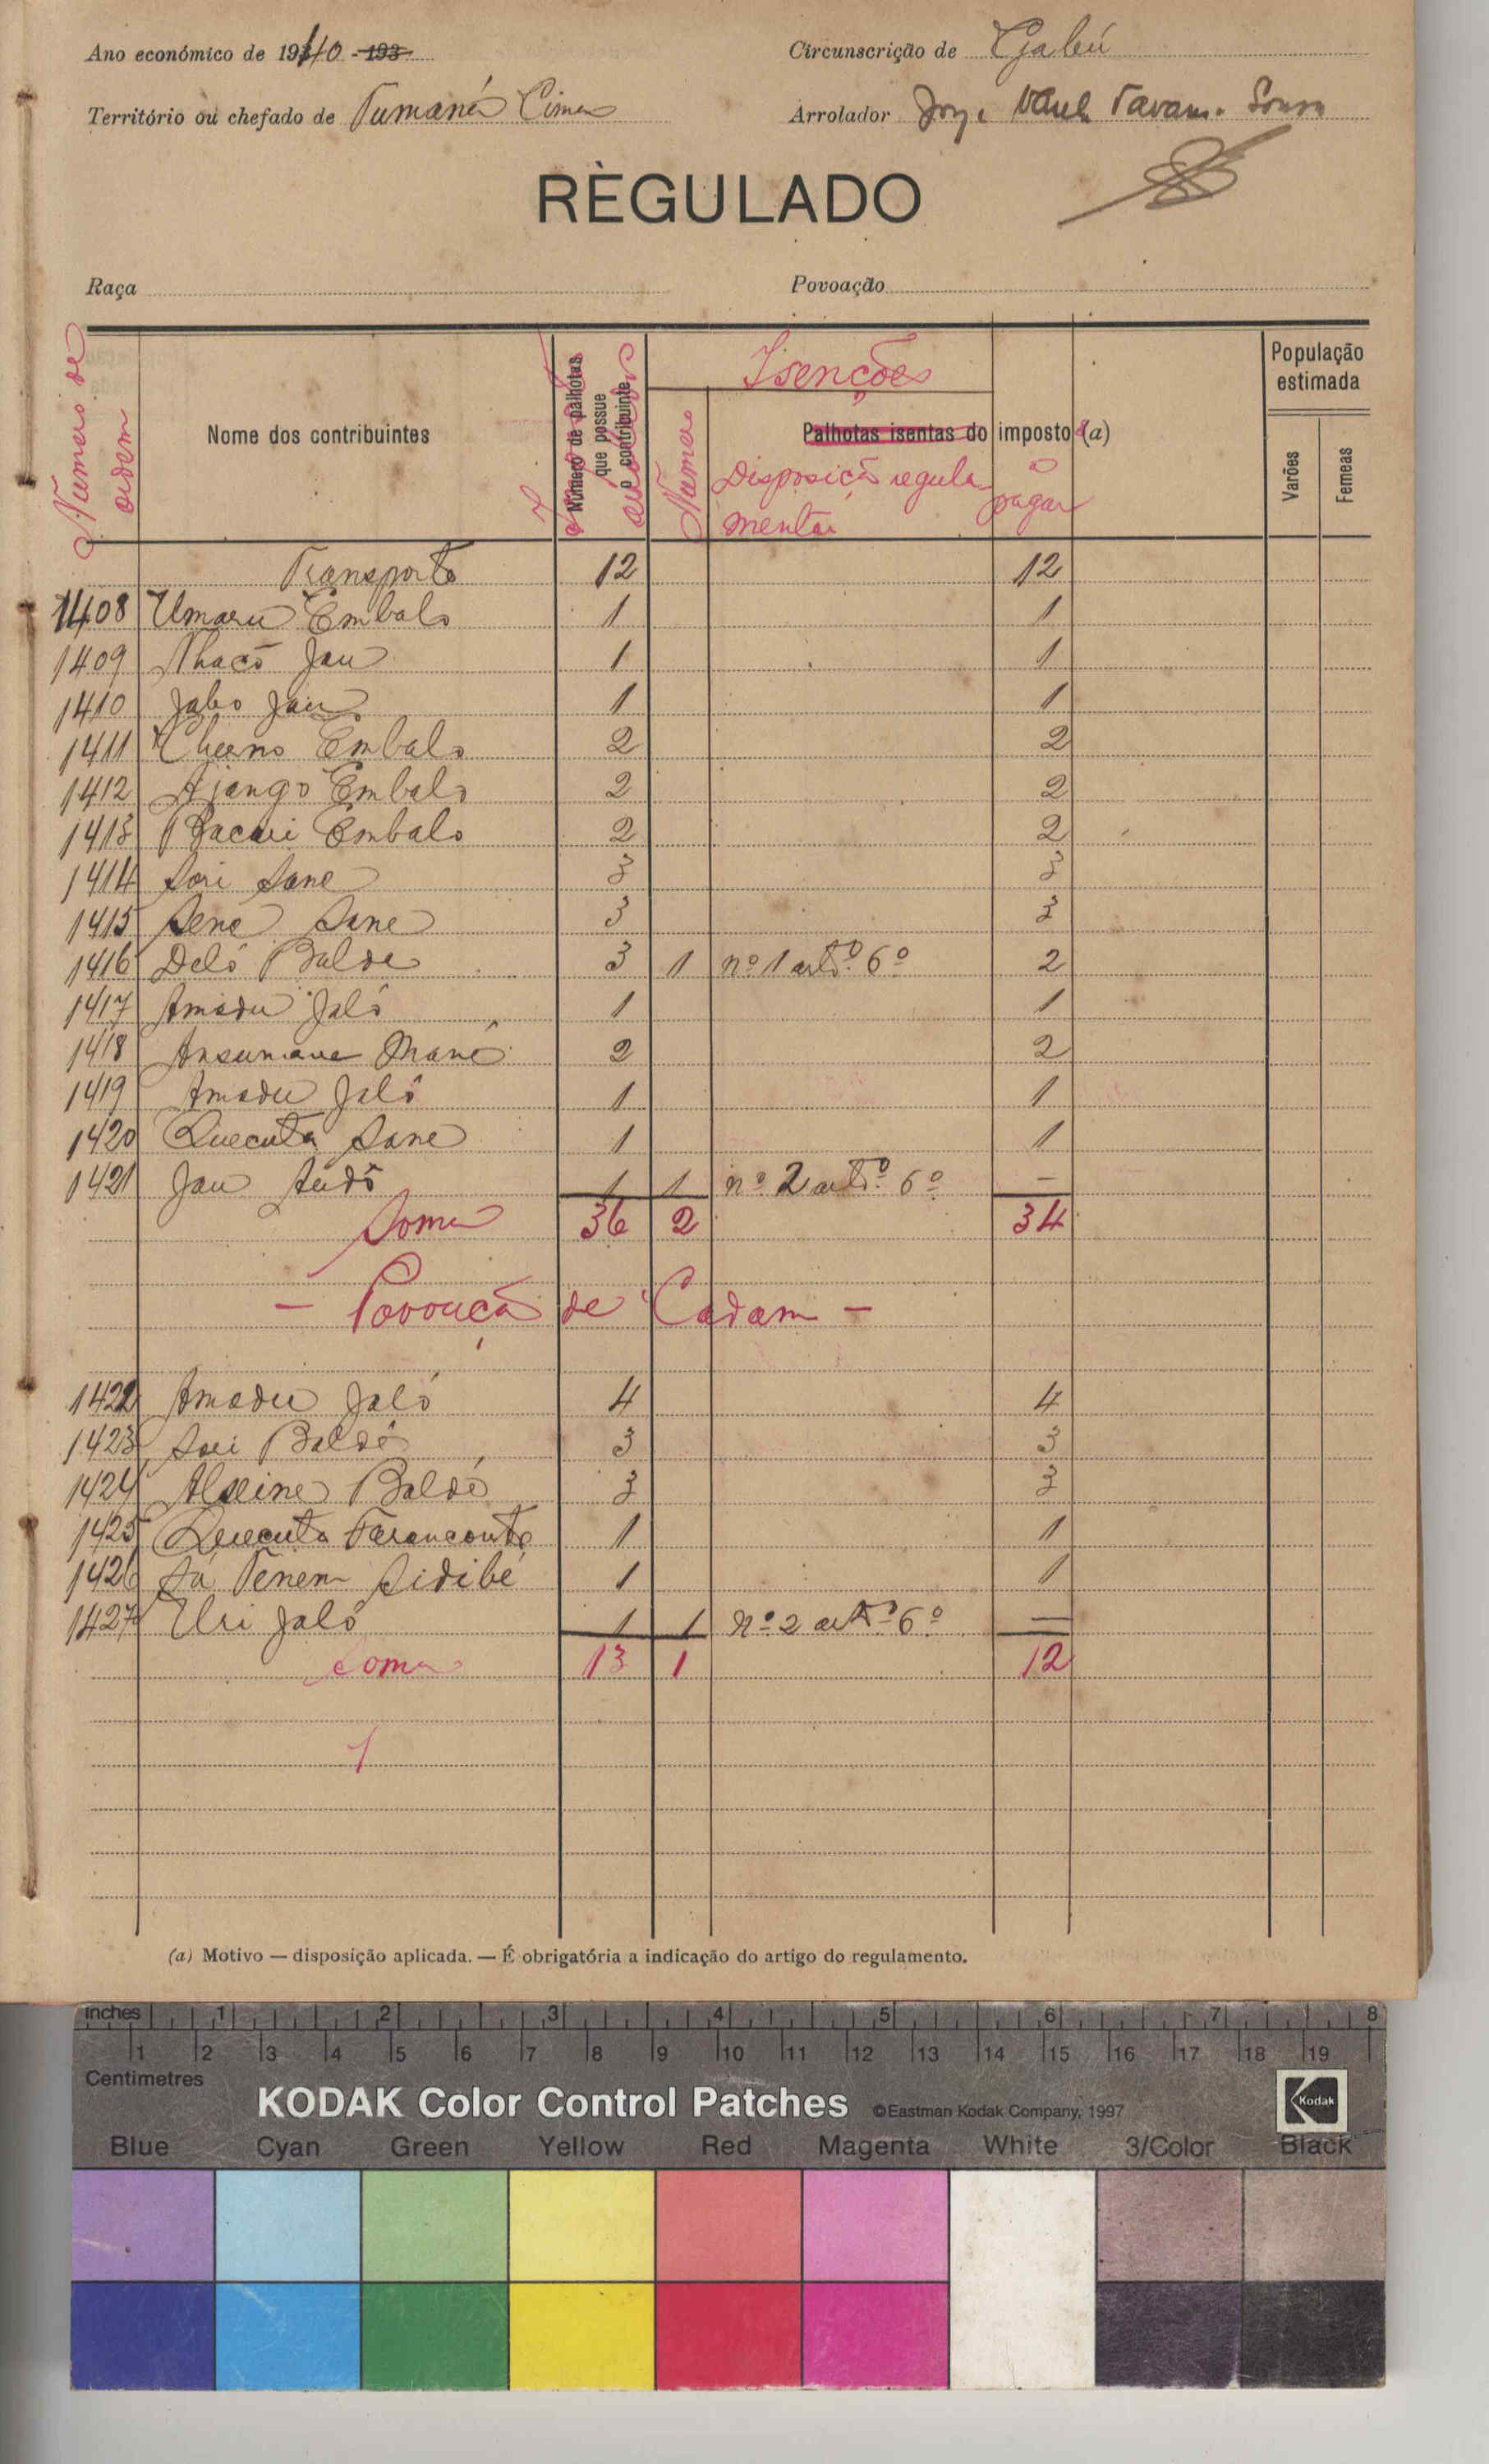 Ano económico de 1940 - 193
Circunscrição de Gabú
Território ou chefado de Tumaná Cima
Arrolador Tavares Sousa
RÈGULADO
Raça
Povoação
Numero de ordem
Nome dos contribuintes
Número de palhotas que possue o contribuinte
Isenções
Numero
Palhotas isentas do imposto (a)
Disposição regulamentar
a pagar
População estimada
Varões
Femeas
Transporte 12 12
1408 Umaru Embalo 1 1
1409 Nhacô Jau 1 1
1410 Jabo Jau 1 1
1411 Cherno Embalo 2 2
1412 Ajango Embalo 2 2
1413 Bacari Embalo 2 2
1414 Sori Sane 3 3
1415 Sene Sane 3 3
1416 Deló Balde 3 1 nº 1 artº. 6º 2
1417 Amadu Jaló 1 1
1418 Ansumane Mané 2 2
1419 Amadu Jaló 1 1
1420 Quecuta Sane 1 1
1421 Jau 1 1 nº 2 artº. 6º —
Soma 36 2 34
— Povoação de Cadam —
1422 Amadu Jaló 4 4
1423 Sori Baldé 3 3
1424 Alseine Baldé 3 3
1425 Quecuta 1 1
1426 Sá Tenem Sidibé 1 1
1427 Uri Jaló 1 1 nº 2 artº 6º —
Soma 13 1 12
(a) Motivo — disposição aplicada. — É obrigatória a indicação do artigo do regulamento.
inches 1 2 3 4 5 6 7 8
1 2 3 4 5 6 7 8 9 10 11 12 13 14 15 16 17 18 19
Centimetres
KODAK Color Control Patches ©Eastman Kodak Company, 1997
Kodak
Blue Cyan Green Yellow Red Magenta White 3/Color Black